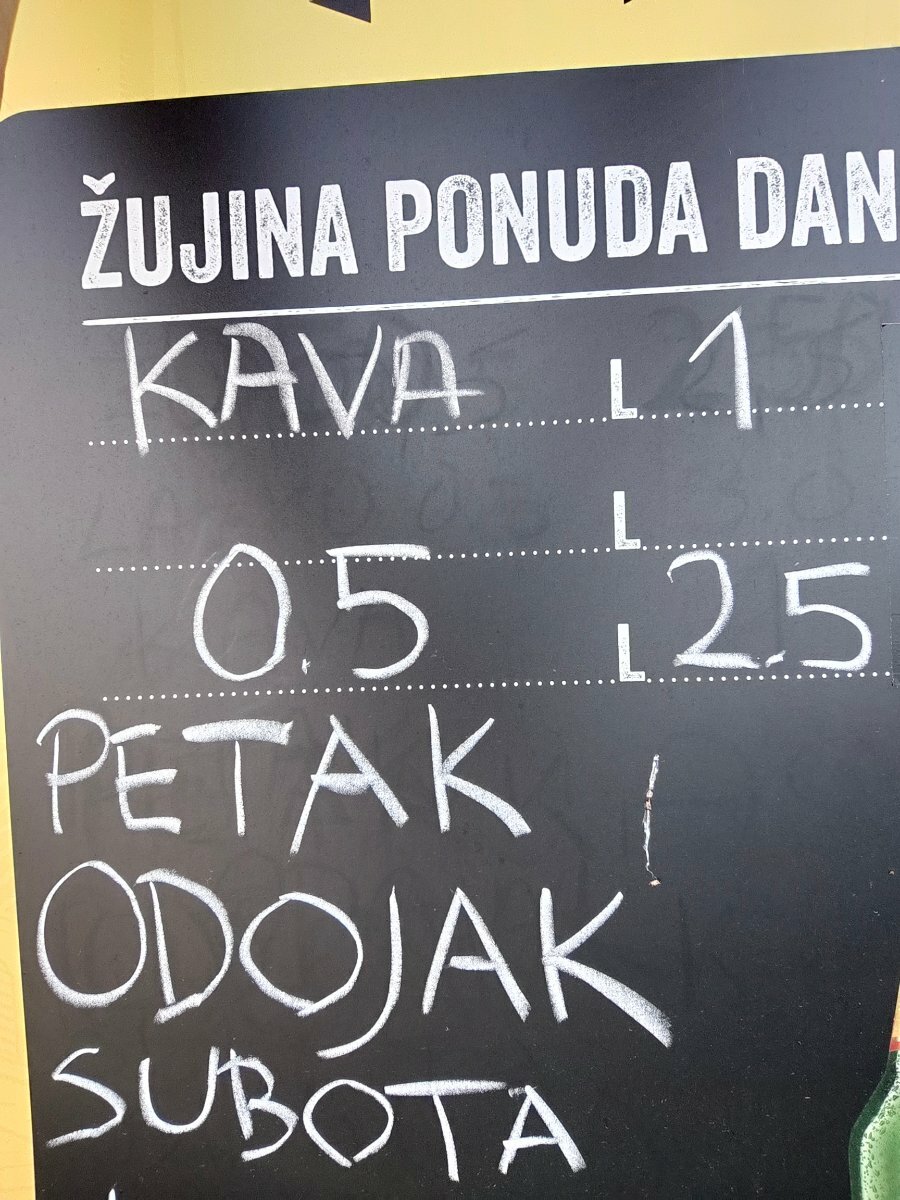 ŽUJINA PONUDA DAN
KAVA L 1
L
0.5 L 2.5
PETAK
ODOJAK
SUBOTA